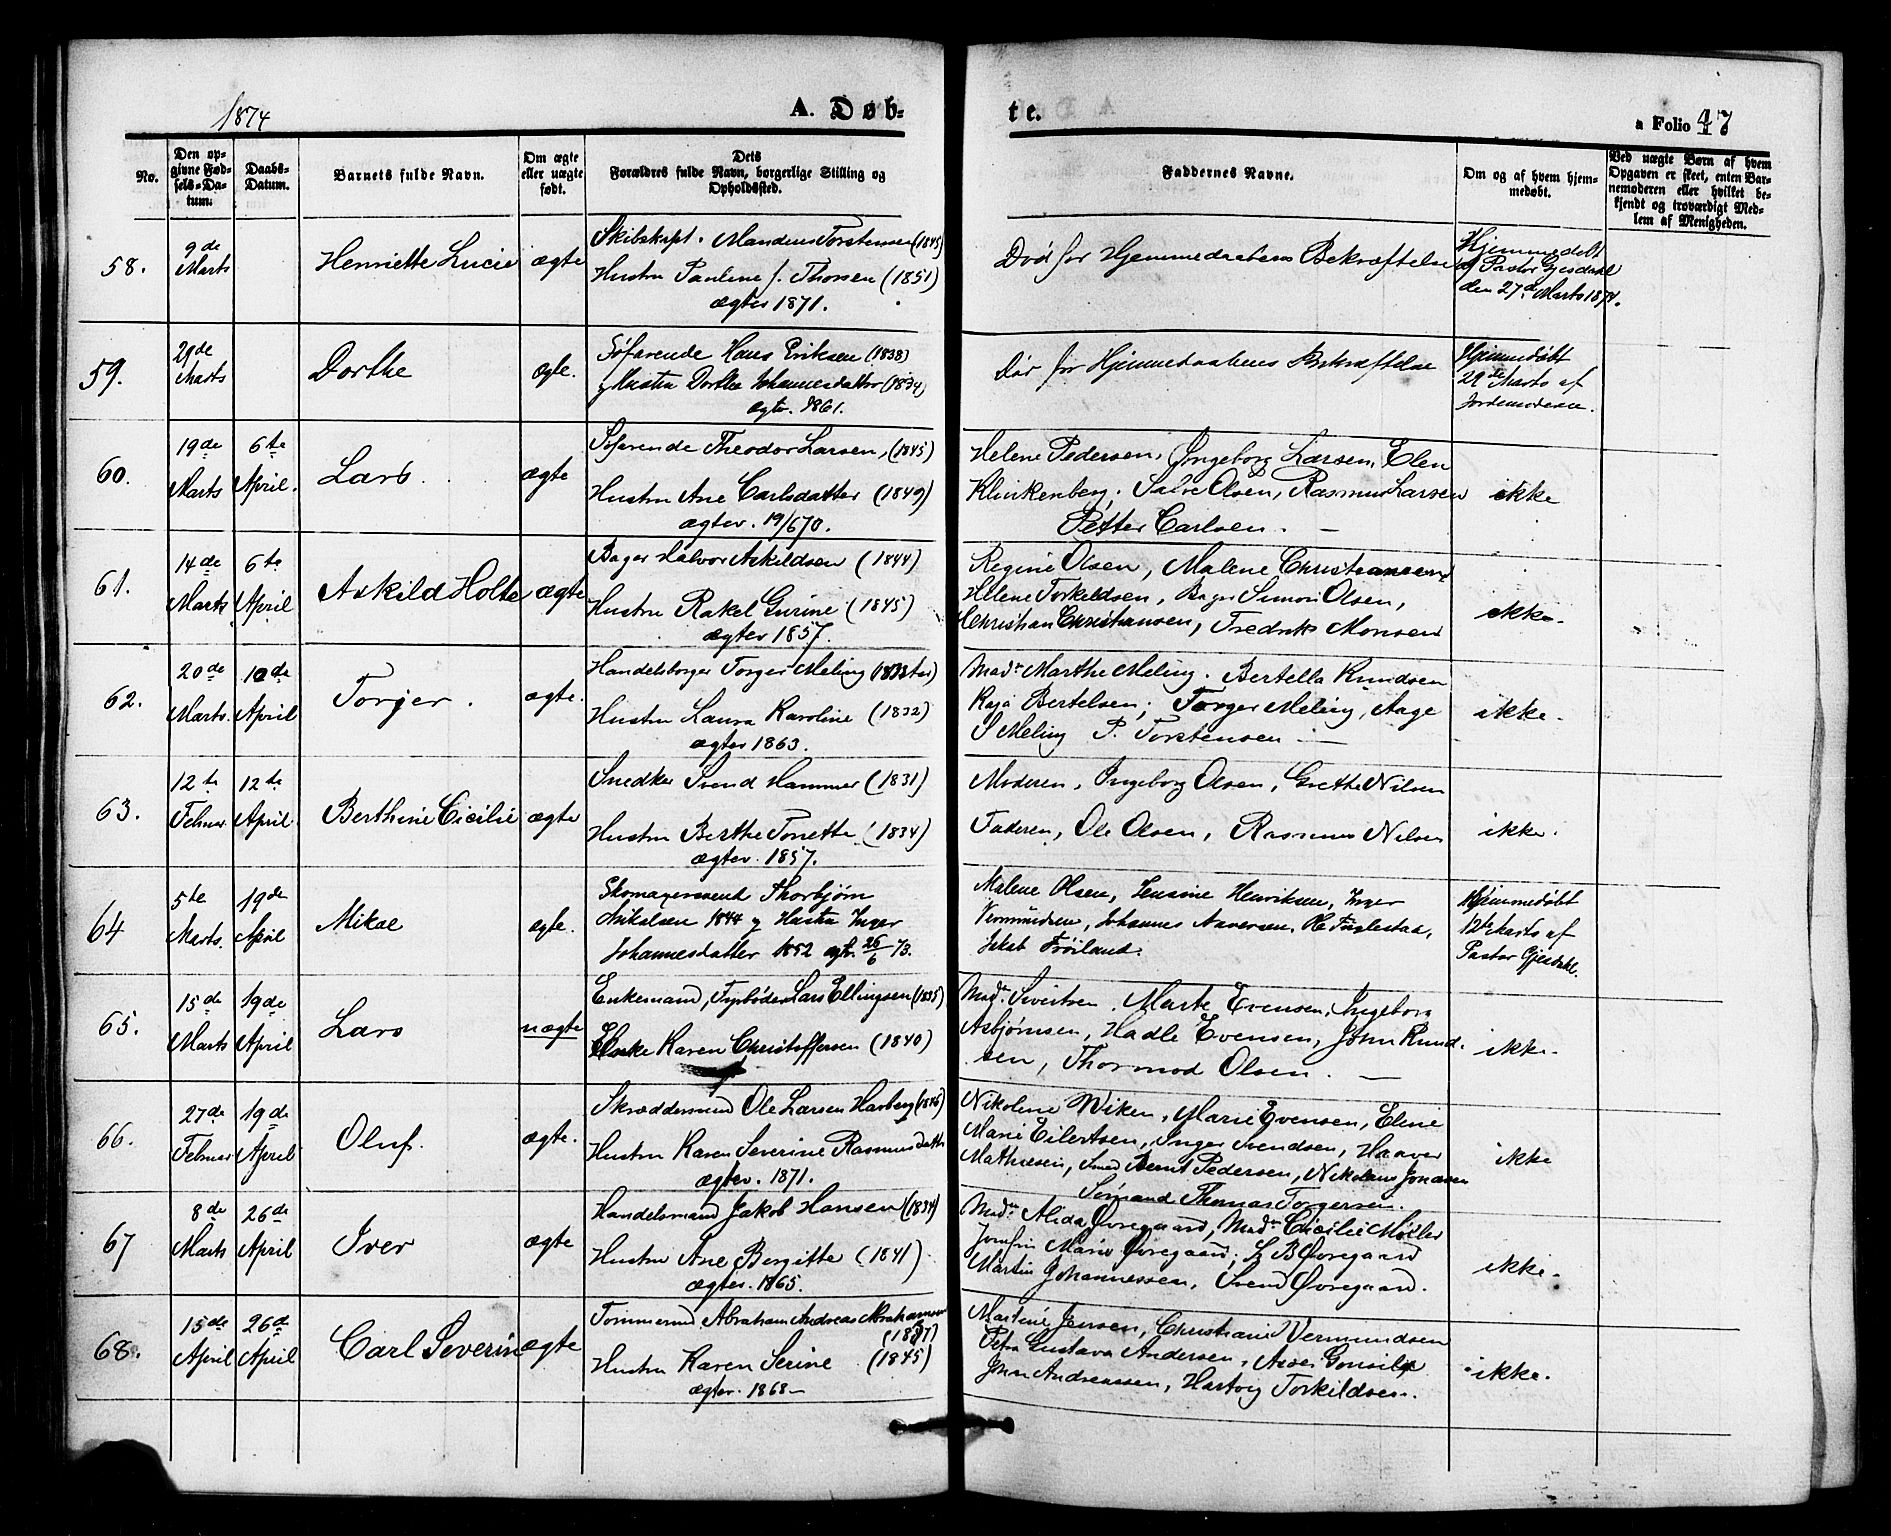 1874
A. Døb-
te.
a Folio 47
No.
Den op-
givne Fød-
sels-Da-
tum.
Daabs-
Datum.
Barnets fulde Navn.
Om ægte
eller uægte
født.
Dets
Forældres fulde Navn, borgerlige Stilling og
Opholdssted.
Faddernes Navne.
Om og af hvem hjem-
medøbt.
Ved uægte Børn af hvem
Opgaven er skeet, enten Bar-
nemoderen eller hvilket be-
kjendt og troværdigt Med-
lem af Menigheden.
58.
9de
Marts
Henriette Lucie
ægte
Skibskapt. Mandius Torstensen (1845)
Hustru Pauline f. Thorsen (1851)
ægtev 1871.
Død før Hjemmedaabens Bekræftelse
Hjemmedøbt
af Pastor Gjesdahl
den 27de Marts 1874.
59.
29de
Marts
Dorthe
ægte.
Søfarende Hans Eriksen (1838)
og Hustru Dorthe Johannesdatter (1834)
ægtev. 1861.
Død før Hjemmedaabens Bekræftelse
Hjemmedøbt
29de Marts af
Jordemoderen.
60.
19de
Marts
6te
April.
Lars
ægte
Søfarende Theodor Larsen, (1845)
Hustru Ane Carlsdatter (1849)
ægtev. 19/6 70.
Helene Pedersen, Ingeborg Larsen, Elen
Klinkenberg. Salve Olsen, Rasmus Larsen
Petter Carlsen. —
ikke
61.
14de
Marts
6te
April
Askild Holte
ægte
Bager Halvor Askildsen (1844)
Hustru Rakel Gurine (1845)
ægtev 1857.
Regine Olsen, Malene Christiansen
Helene Torkildsen, Bager Simon Olsen,
Christian Christiansen, Fredrik Monsen
ikke.
62.
20de
Marts.
10de
April
Torger.
ægte.
Handelsborger Torger Meling
Hustru Laura Karoline (1832)
ægtev 1863.
Mad. Marthe Meling. Bertella Knudsen
Kaja Bertelsen; Torger Meling, Aage
S Meling P. Torstensen —
ikke.
63.
12te
Februar.
12te
April.
Berthine Cicilie
ægte
Snedker Svend Hammer (1831)
Hustru Berthe Tonette (1834)
ægtev. 1857.
Moderen, Ingeborg Olsen, Grethe Nilsen
Faderen, Ole Olsen, Rasmus Nilsen
ikke.
64
5te
Marts.
19de
April
Mikal
ægte.
Skomagersvend Thorbjørn
Mikalsen 1844 og Hustru Inger
Johannesdatter 1852 ægtv. 26/6 73.
Malene Olsen, Lensine Henriksen, Inger
Vermundsen, Johannes Aanensen, Fuglestad,
Jakob Frøiland.
Hjemmedøbt
12te Marts af
Pastor Gjesdahl.
65.
15de
Marts
19de
April
Lars
uægte
Enkemand, Fyrbøder Lars Ellingsen (1835)
Enke Karen Christoffersen (1840)
Mad. Sivertsen. Marte Evensen, Ingeborg
Asbjørnsen, Hadle Evensen, John Knud-
sen, Thormod Olsen. —
ikke.
66.
27de
Februar
19de
April
Oluf.
ægte.
Skræddersvend Ole Larsen Hasberg (1846)
Hustru Karen Severine Rasmusdatter
ægtev. 1871.
Nikolene Wiken, Marie Evensen, Eline
Marie Eilertsen, Inger Svendsen, Haaver
Mathiesen, Smed Bernt Pedersen, Nikolaus Jonasen
Sømand Thomas Torgersen.
ikke
67
8de
Marts
26de
April
Iver
ægte
Handelsmand Jakob Hansen (1834)
Hustru Ane Bergitte (1841)
ægtev. 1865.
Mad. Alida Øvregaard, Mad. Cicilie Møller
Jomfru Marie Øvregaard; L B Øvregaard
Martin Johannessen, Svend Øvregaard.
ikke.
68.
15de
April
26de
April
Carl Severin
ægte
Tømmermd. Abraham Andreas Abrahamsen
(1847)
Hustru Karen Serine (1845)
ægtev. 1868 —
Martine Jensen, Christiane Vermundsen
Petra Gustava Andersen, Asser
John Andreassen, Hartvig Torkildsen.
ikke.